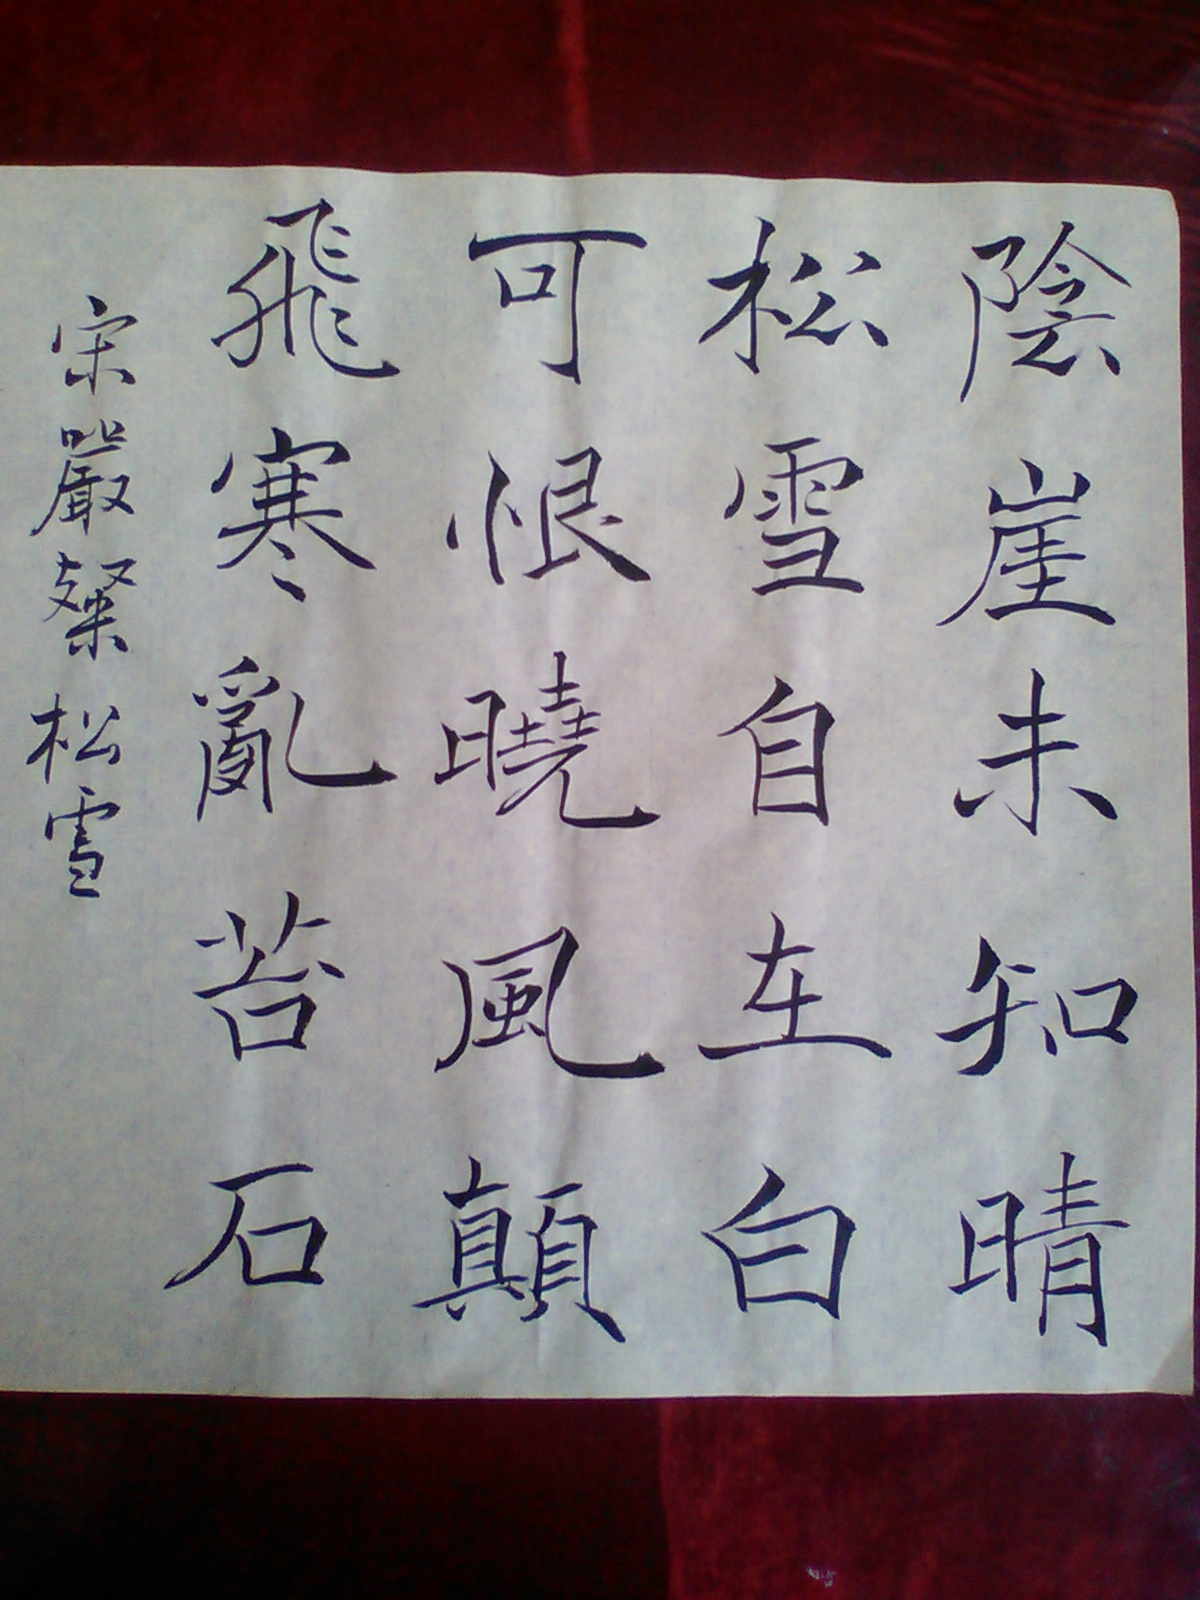 陰崖未知晴
松雪自在白
可恨曉風顛
飛寒亂苔石
宋嚴粲松雪